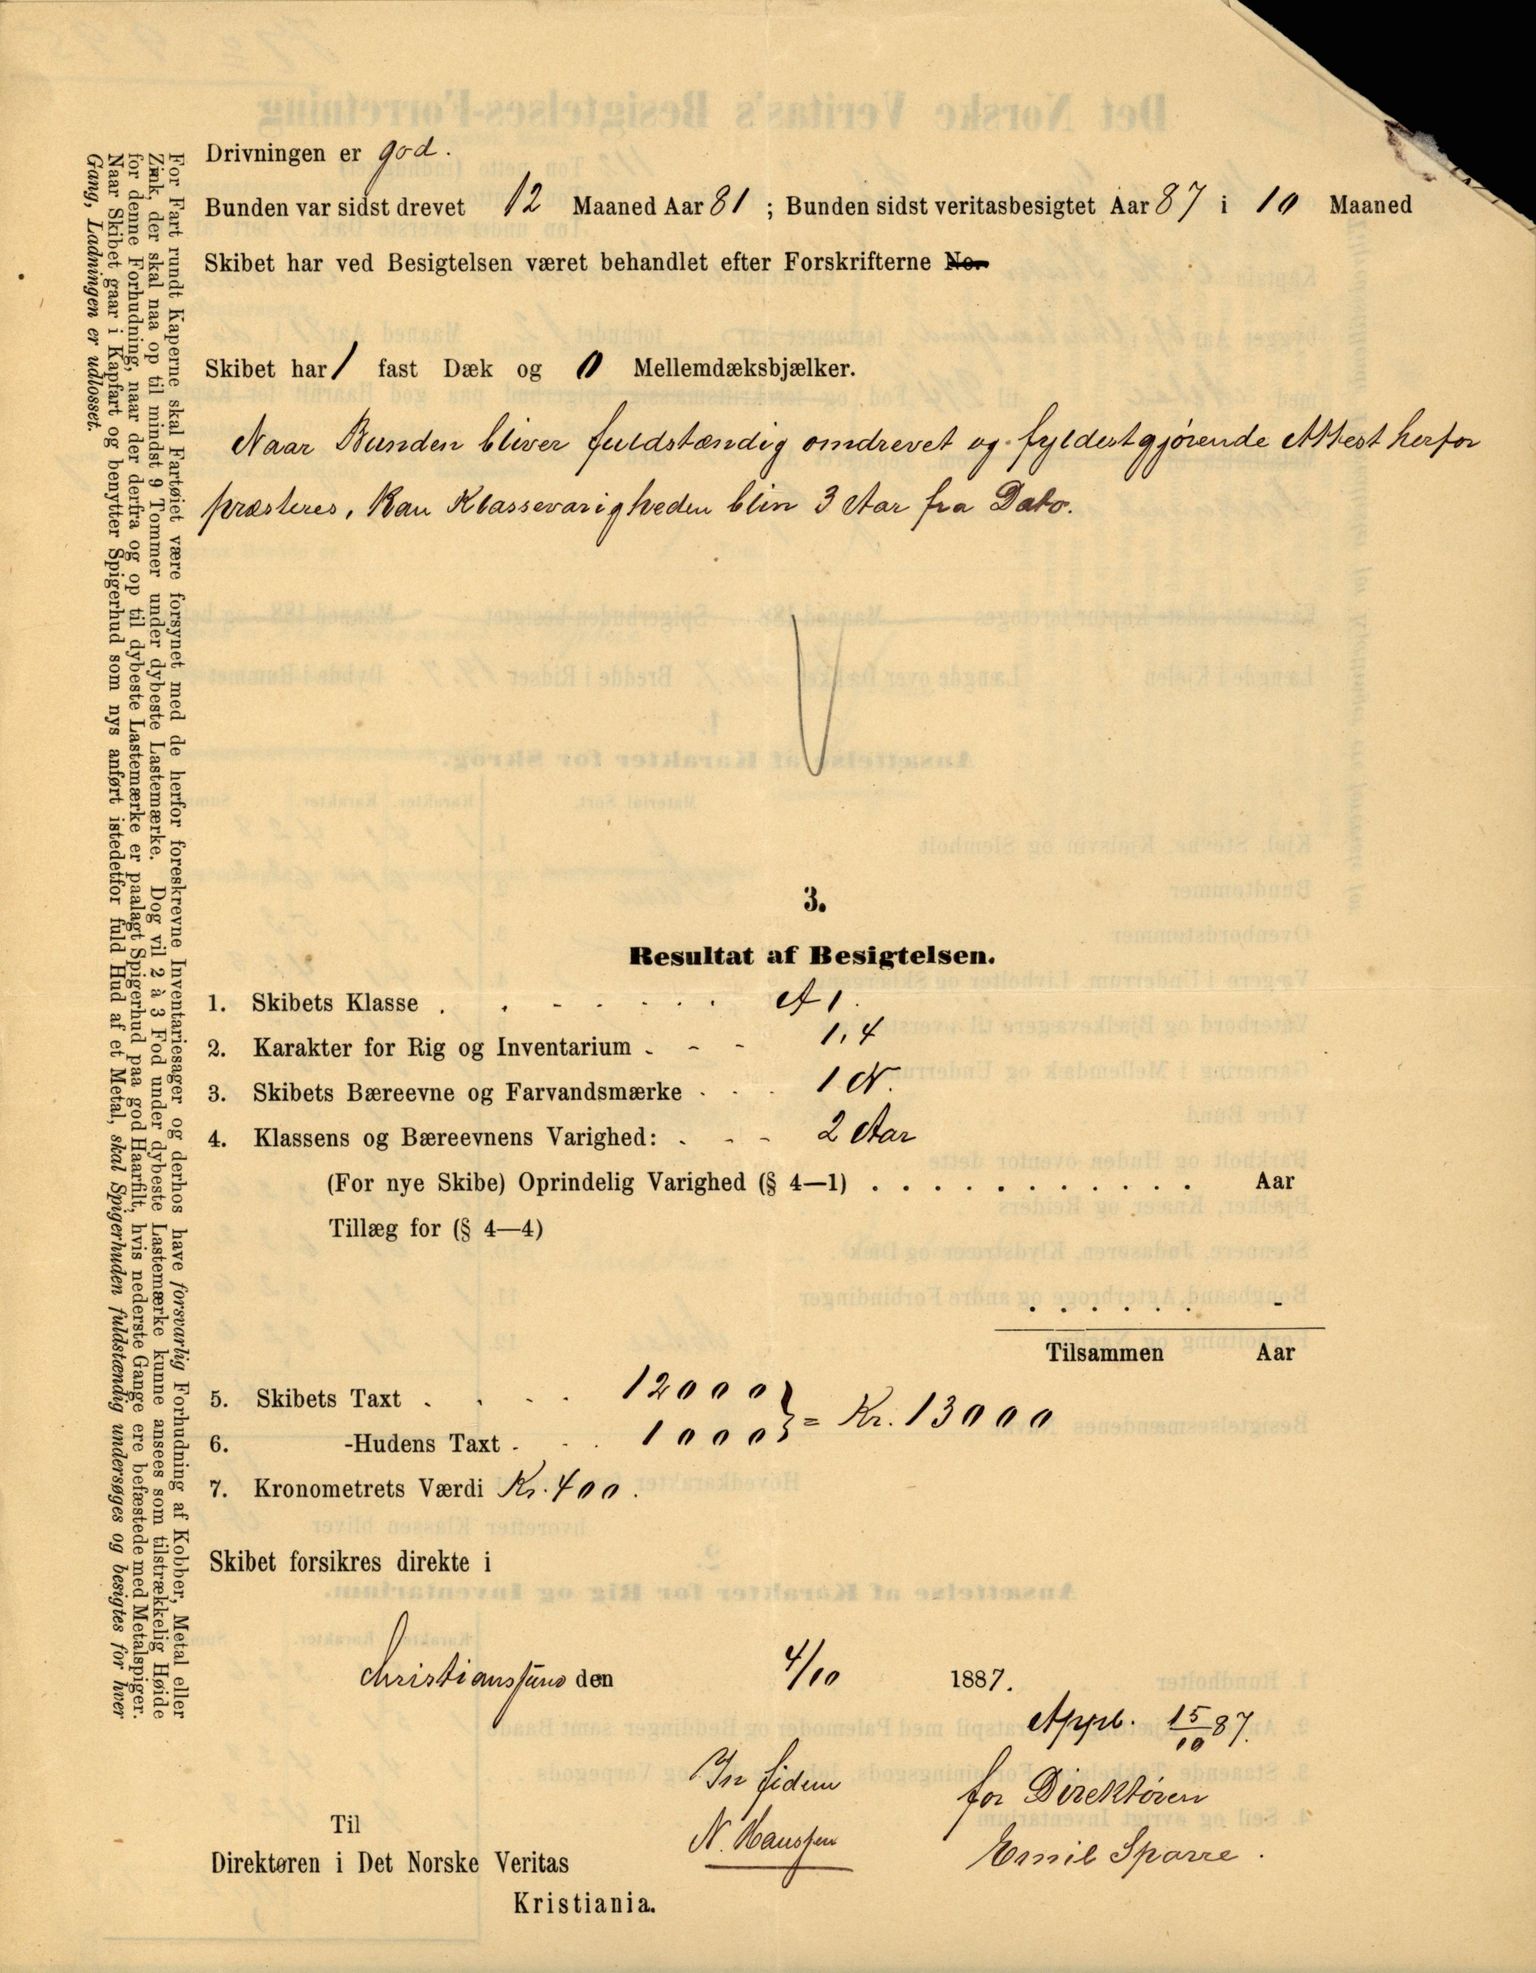 Drivningen er god.
Bunden var sidst drevet 12 Maaned Aar 81 ; Bunden sidst veritasbesigtet Aar 87 i 10 Maaned
Skibet har ved Besigtelsen været behandlet efter Forskrifterne No.
Skibet har 1 fast Dæk og 0 Mellemdæksbjælker.
Naar Bunden bliver fuldstændig omdrevet og fyldestgjørende Attest herfor
præsteres, kan Klassevarigheden bliv 3 Aar fra Dato.
3.
Resultat af Besigtelsen.
1. Skibets Klasse . . - - - - . A 1.
2. Karakter for Rig og Inventarium - - - 1,4
3. Skibets Bæreevne og Farvandsmærke . . . 1 N.
4. Klassens og Bæreevnens Varighed: . - - 2 Aar
(For nye Skibe) Oprindelig Varighed (§ 4—1) . . . . . . . . . . . . Aar
Tillæg for (§ 4—4)
. . . . . . -
Tilsammen Aar
5. Skibets Taxt . . . . 12000
6. -Hudens Taxt . . . 1000 } = Kr. 13000
7. Kronometrets Værdi Kr. 400.
Skibet forsikres direkte i
Christianssund den 4/10 1887.
Appb. 15/10 87.
In fidem for Direktören
Til N. Hanssen Emil Sparre.
Direktøren i Det Norske Veritas
Kristiania.
For Fart rundt Kaperne skal Fartøiet være forsynet med de herfor foreskrevne Inventariesager og derhos have forsvarlig Forhudning af Kobber, Metal eller
Zink, der skal naa op til mindst 9 Tommer under dybeste Lastemærke. Dog vil 2 à 3 Fod under dybeste Lastemærke kunne ansees som tilstrækkelig Høide
for denne Forhudning, naar der derfra og op til dybeste Lastemærke er paalagt Spigerhud paa god Haarfilt, hvis nederste Gange ere befæstede med Metalspiger.
Naar Skibet gaar i Kapfart og benytter Spigerhud som nys anført istedetfor fuld Hud af et Metal, skal Spigerhuden fuldstændig undersøges og besigtes for hver
Gang, Ladningen er udlosset.